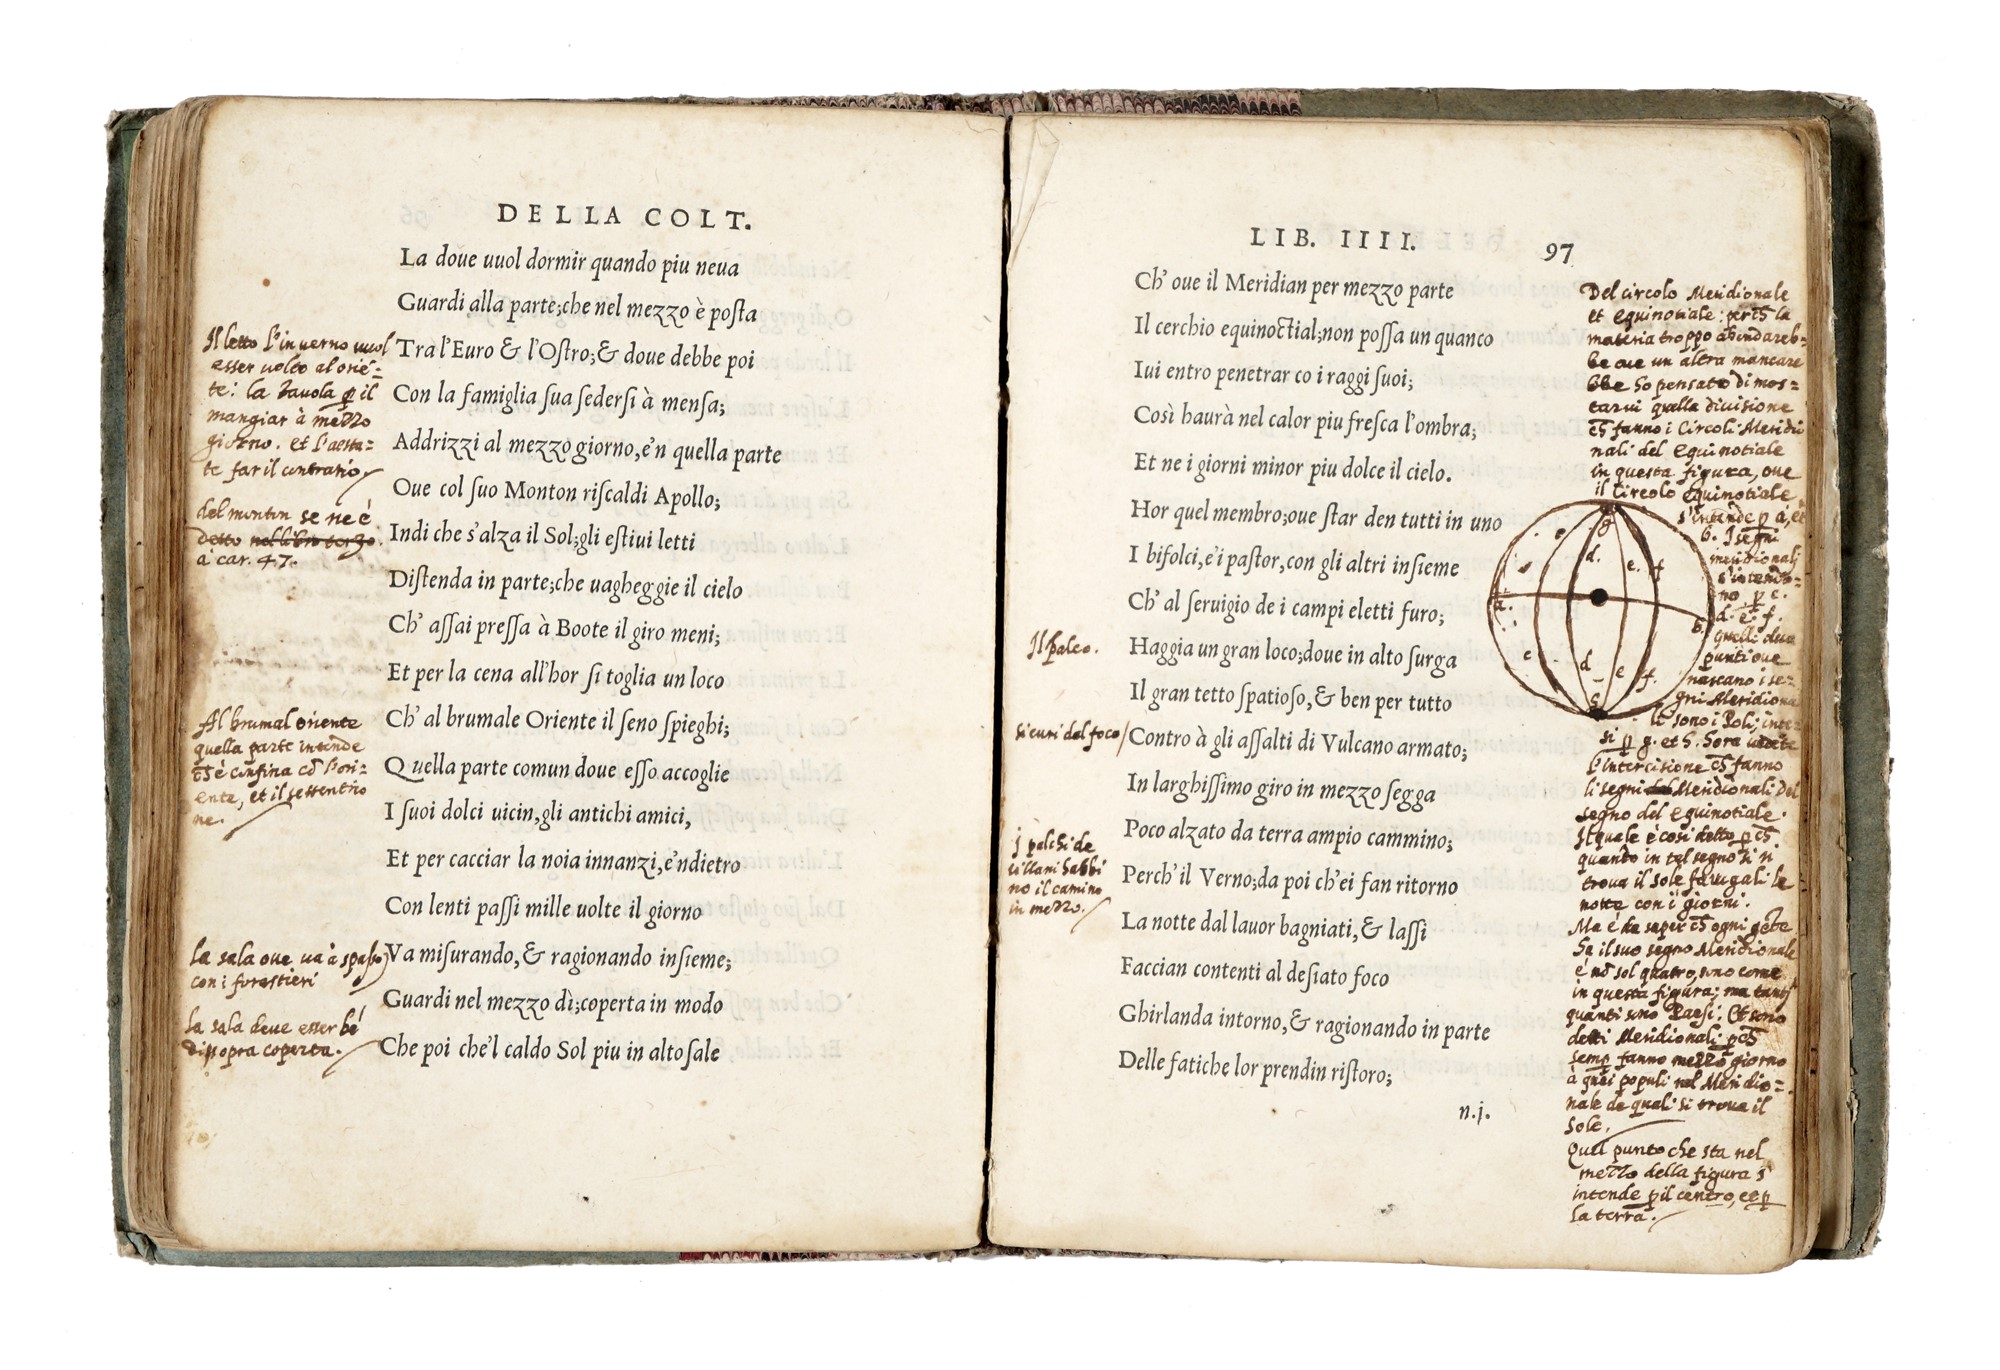 DELLA COLT.
La doue uuol dormir quando piu neua
Guardi alla parte;che nel mezzo è posta
Tra l'Euro & l'Ostro;& doue debbe poi
Con la famiglia sua sedersi à mensa;
Addrizzi al mezzo giorno,e'n quella parte
Oue col suo Monton riscaldi Apollo;
Indi che s'alza il Sol;gli estiui letti
Distenda in parte;che uagheggie il cielo
Ch' assai pressa à Boote il giro meni;
Et per la cena all'hor si toglia un loco
Ch' al brumale Oriente il seno spieghi;
Quella parte comun doue esso accoglie
I suoi dolci uicin,gli antichi amici,
Et per cacciar la noia innanzi,e'ndietro
Con lenti passi mille uolte il giorno
Va misurando,& ragionando insieme;
Guardi nel mezzo dì;coperta in modo
Che poi che'l caldo Sol piu in alto sale
Il letto l'inverno vuol
esser uolto al orië=
te: la tauola p il
mangiar à mezzo
giorno. et l'aesta=
te far il contrario
del monton se ne é
detto nel libro terzo.
à car. 47.
Al brumal oriente
quella parte intende
confina cõ l'ori=
ente, et il settentrio
ne.
la sala oue ua à spasso
con i forestieri
la sala deue esser bé
disopra coperta.
LIB. IIII. 97
Ch' oue il Meridian per mezzo parte
Il cerchio equinoctial;non possa un quanco
Iui entro penetrar co i raggi suoi;
Così haurà nel calor piu fresca l'ombra;
Et ne i giorni minor piu dolce il cielo.
Hor quel membro;oue star den tutti in uno
I bifolci,e'i pastor,con gli altri insieme
Ch' al seruigio de i campi eletti furo;
Haggia un gran loco;doue in alto surga
Il gran tetto spatioso,& ben per tutto
Contro à gli assalti di Vulcano armato;
In larghissimo giro in mezzo segga
Poco alzato da terra ampio cammino;
Perch' il Verno;da poi ch'ei fan ritorno
La notte dal lauor bagniati,& lassi
Faccian contenti al desiato foco
Ghirlanda intorno,& ragionando in parte
Delle fatiche lor prendin ristoro;
n.j.
Il palco.
sicuri dal foco
j palchi de
uillani habbi
no il camino
in mezzo.
Del circolo Meridionale
et equinotiale: la
materia troppo abondareb=
be oue un altra mancare
bbe ho pensato di mos=
tarui quella diuisione
fanno i Circoli Meridio
nali del equinotiale
in questa figura, oue
il Circolo equinotiale
s'intende p a, et
b. I segni
meridionali
s'intendo=
no p c.
d. e. f.
quelli dua
punti oue
nascano i se=
gni Meridiona
li sono i Poli; inte=
si p g. et h. hora uedete
l'intercisione fanno
li segni Meridionali del
segno del equinotiale.
Il quale è cosi detto
quando in tel segno si ri
troua il sole le
notte con i giorni.
Ma é da saper ogni gete
ha il suo segno Meridionale
é nõ sol quatro, sono come
in questa figura; ma tanti
quanti sono Paesi; Et sono
detti Meridionali
semp fanno mezzo giorno
à quei populi nel Meridio=
nale de quali si troua il
sole.
Quel punto che sta nel
mezzo della figura s'
intende p il centro, et p
la terra.
g
c
d.
e.
f
a.
b.
c
d
e
f.
h